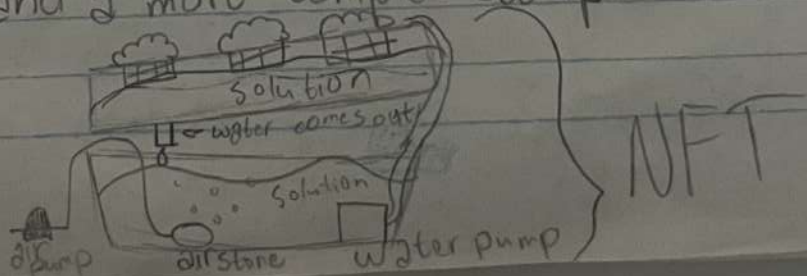 and 2 more
solution
water comes out
solution
NFT
air pump
airstone
water pump